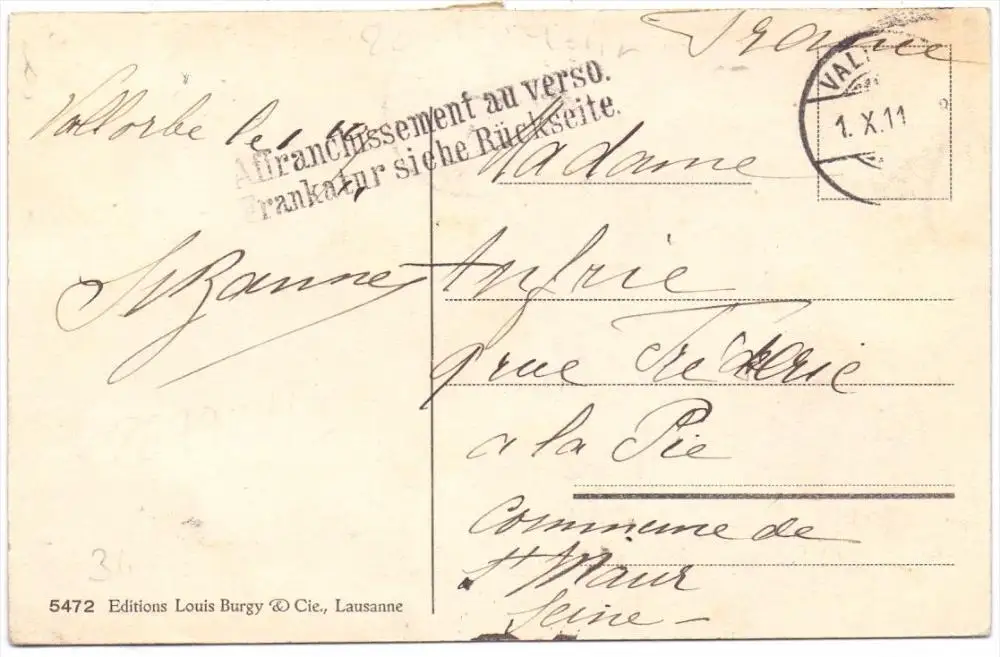 France
Vallorbe le 1
Affranchissement au verso.
Frankatur siehe Rückseite.
VAL
1. X. 11
Suzanne
Madame
Anfrie
9 rue Fréderic
a la Pie
Commune de
St Maur
Seine
5472 Editions Louis Burgy & Cie., Lausanne